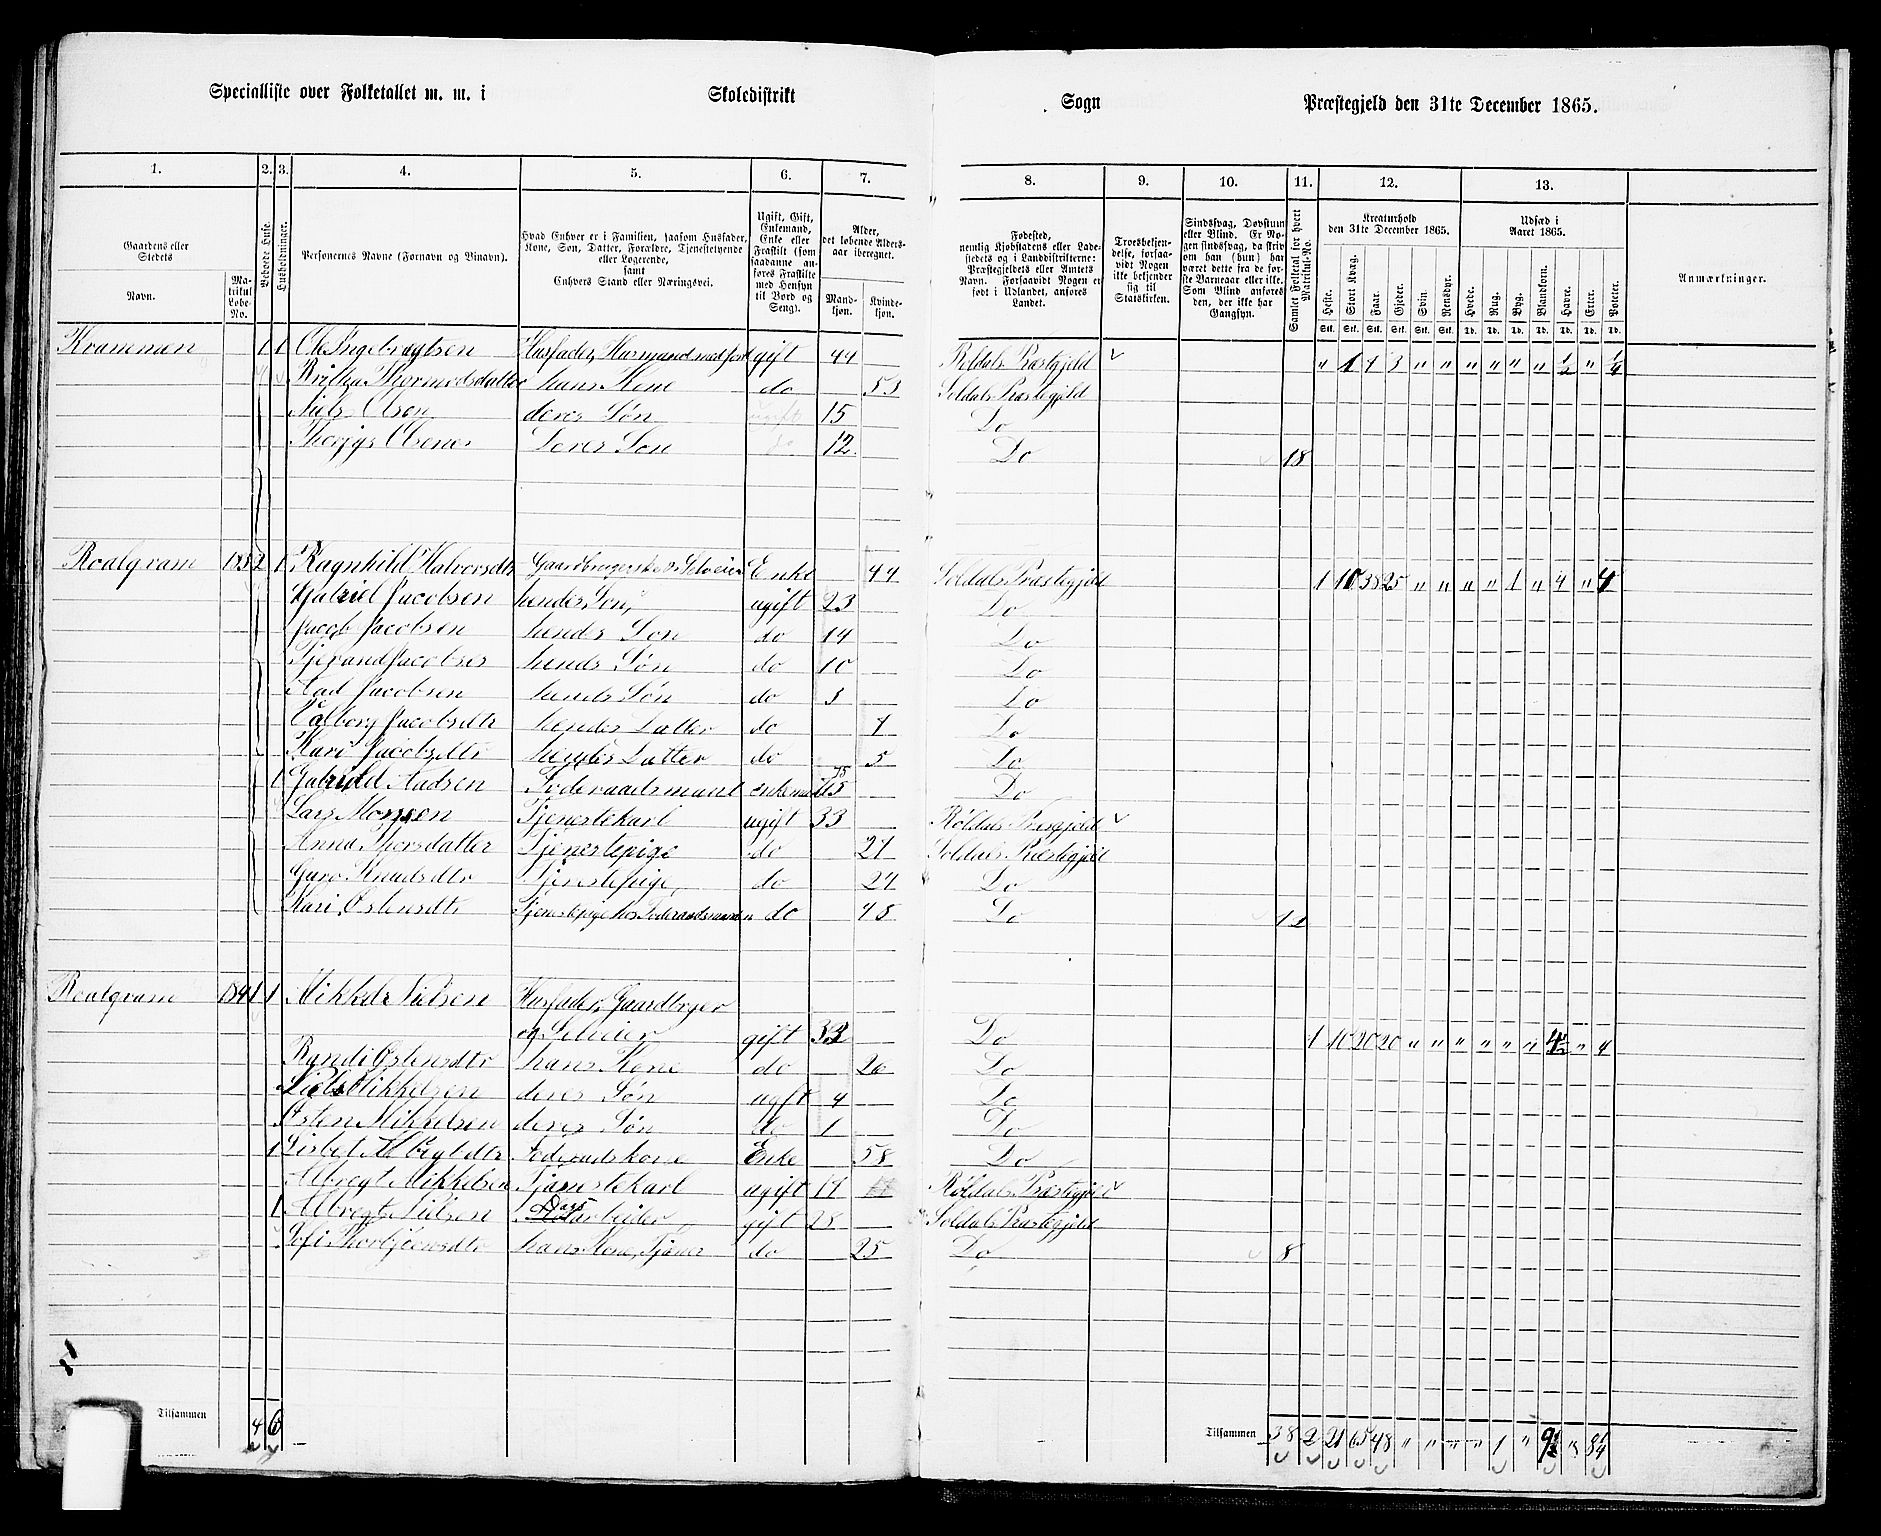 Specialliste over Folketallet m. m. i Skoledistrikt Sogn Præstegjeld den 31te December 1865.
1. 2. 3. 4. 5. 6. 7. 8. 9. 10. 11. 12. 13.
Gaardens eller Stedets
Navn.
Matrikul Løbe-No.
Beboede Huse.
Husholdninger.
Personernes Navne (Fornavn og Binavn).
Hvad Enhver er i Familien, saasom Husfader, Kone, Søn, Datter, Forældre, Tjenestetyende eller Logerende, samt Enhvers Stand eller Næringsvei.
Ugift, Gift, Enkemand, Enke eller Fraskilt (som saadanne anføres Fraskilte med Hensyn til Bord og Seng).
Alder, det løbende Alders-aar iberegnet.
Mandkjøn. Kvindekjøn.
Fødested, nemlig Kjøbstadens eller Ladestedets og i Landdistrikterne: Præstegjeldets eller Amtets Navn. Forsaavidt Nogen er født i Udlandet, anføres Landet.
Troesbekjendelse, forsaavidt Nogen ikke bekjender sig til Statskirken.
Sindssvag, Døvstum eller Blind. Er Nogen sindssvag, da skrives om han (hun) har været dette fra de første Barneaar eller ikke. Som Blind anføres den, der ikke har Gangsyn.
Samlet Folketal for hvert Matrikul-No.
Kreaturhold den 31te December 1865.
Heste. Stort Kvæg. Faar. Gjeder. Svin. Rensdyr.
Udsæd i Aaret 1865.
Hvede. Rug. Byg. Blandkorn. Havre. Erter. Poteter.
Anmærkninger.
Stk. Stk. Stk. Stk. Stk. Stk. Td. Td. Td. Td. Td. Td. Td.
1 1 Ole Ingebregtsen Husfader, Husmand med Jord gift 44 Røldals Præstegjeld " 1 4 3 " " " " " " 1/2 " 1/4
Thormodsdatter hans Kone do 53 Soldals Præstegjeld
Niels Olsen deres Søn ugift 15 Do
Olsen deres Søn do 12 Do 18
Roalqvam 2 1 Ragnhild Halvorsdtr Gaardbrugerske og Selveier Enke 44 Soldals Præstegjeld 1 10 38 25 " " " " 1 " 4 " 4
Gabriel Jacobsen hendes Søn ugift 23 Do
Jacob Jacobsen hendes Søn do 14 Do
Tjerand Jacobsen hends Søn do 10 Do
Aad Jacobsen hends Søn do 3 Do
Valborg Jacobsdtr hendes Datter do 7 Do
Kari Jacobsdtr hendes Datter do 5 Do
1 Gabriel Aadsen Foderaadsmand enkemand 75 Do
Lars Monsen Tjenestekarl ugift 33 Røldals Præstgjeld
Anna Thorsdatter Tjenestepige do 27 Soldals Præstegjeld
Guro Knudsdtr Tjenestepige do 24 Do
Kari Østensdtr Tjenestepige hos Foderaadsmanden do 45 Do 12
Roalqvam 184 1 1 Mikkel Nielsen Husfader, Gaardbruger
og Selveier gift 33 Do 1 10 20 20 " " " " " " 4 1/2 " 4
Randi Østensdtr hans Kone do 26 Do
Niels Mikkelsen deres Søn ugift 4 Do
Østen Mikkelsen deres Søn do 1 Do
1 Lisbet Albregtdtr Foderaadskone Enke 58 Do
Albregt Mikkelsen Tjenestekarl ugift 17 Røldals Præstegjeld
1 Albregt Nielsen Dagarbeider gift 28 Soldals Præstegjeld
Sofi Thorbjørnsdtr hans Kone, Tjener do 25 Do 8
Tilsammen 4 6
Tilsammen 38 2 21 65 48 " " " " 1 " 9 " 8 1/4